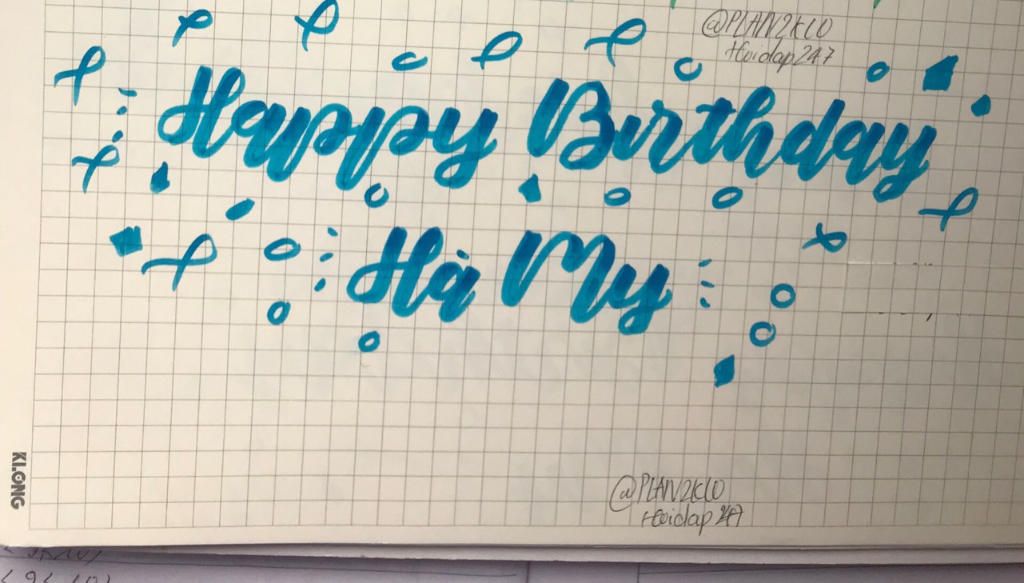 @PLAN2KLO
Hoidap247
Happy Birthday
Hà My
KLONG
@PLAN2KLO
Hoidap247